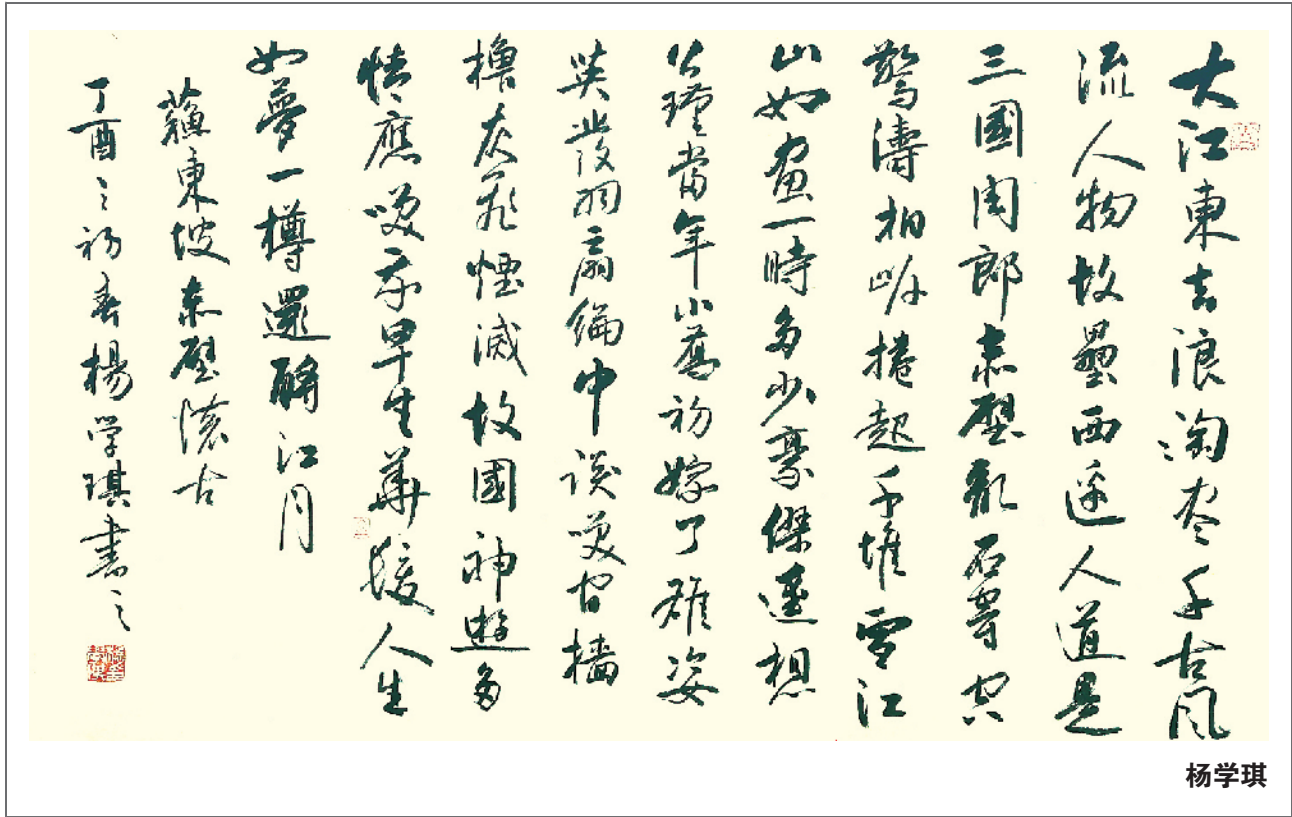 大江東去浪淘尽千古风
流人物故壘西邊人道是
三國周郎赤壁亂石穿空
驚濤拍岸捲起千堆雪江
山如畫一時多少豪傑遥想
公瑾當年小喬初嫁了雄姿
英發羽扇綸中談笑间檣
櫓灰飛煙滅故國神遊多
情應笑我早生華髮人生
如夢一樽還酹江月
蘇東坡赤壁懷古
丁酉之初春楊学琪書之
杨学琪